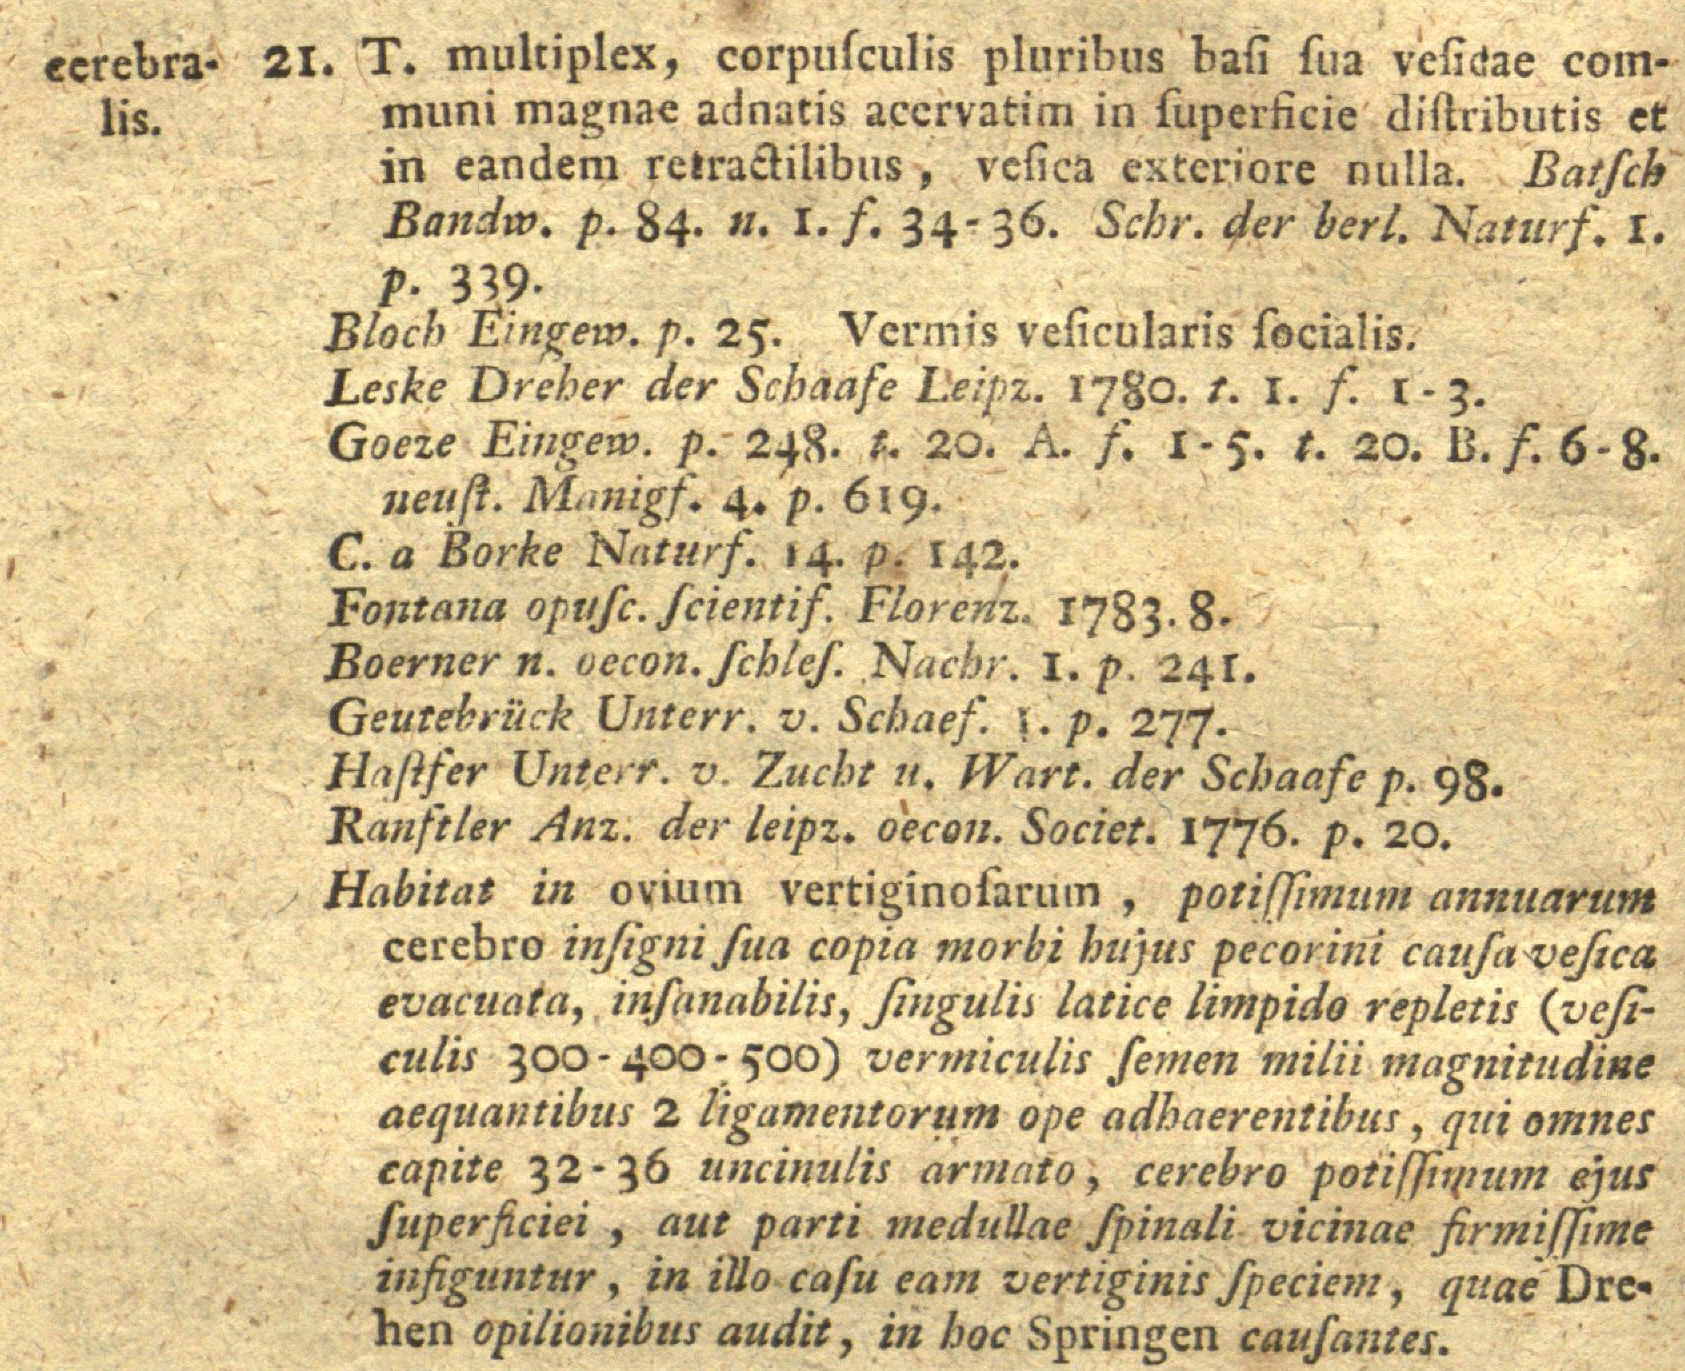 cerebra-
lis.
21. T. multiplex, corpuſculis pluribus baſi ſua veſicae com-
muni magnae adnatis acervatim in ſuperficie diſtributis et
in eandem retractilibus, veſica exteriore nulla. Batſch
Bandw. p. 84. n. 1. f. 34-36. Schr. der berl. Naturf. 1.
p. 339.
Bloch Eingew. p. 25. Vermis veſicularis ſocialis.
Leske Dreher der Schaafe Leipz. 1780. t. 1. f. 1-3.
Goeze Eingew. p. 248. t. 20. A. f. 1-5. t. 20. B. f. 6-8.
neuſt. Manigf. 4. p. 619.
C. a Borke Naturf. 14. p. 142.
Fontana opuſc. ſcientif. Florenz. 1783. 8.
Boerner n. oecon. ſchleſ. Nachr. 1. p. 241.
Geutebrück Unterr. v. Schaef. 1. p. 277.
Haſtfer Unterr. v. Zucht u. Wart. der Schaafe p. 98.
Ranftler Anz. der leipz. oecon. Societ. 1776. p. 20.
Habitat in ovium vertiginoſarum, potiſſimum annuarum
cerebro inſigni ſua copia morbi hujus pecorini cauſa veſica
evacuata, inſanabilis, ſingulis latice limpido repletis (veſi-
culis 300-400-500) vermiculis ſemen milii magnitudine
aequantibus 2 ligamentorum ope adhaerentibus, qui omnes
capite 32-36 uncinulis armato, cerebro potiſſimum ejus
ſuperficiei, aut parti medullae ſpinali vicinae firmiſſime
infiguntur, in illo caſu eam vertiginis ſpeciem, quae Dre-
hen opilionibus audit, in hoc Springen cauſantes.